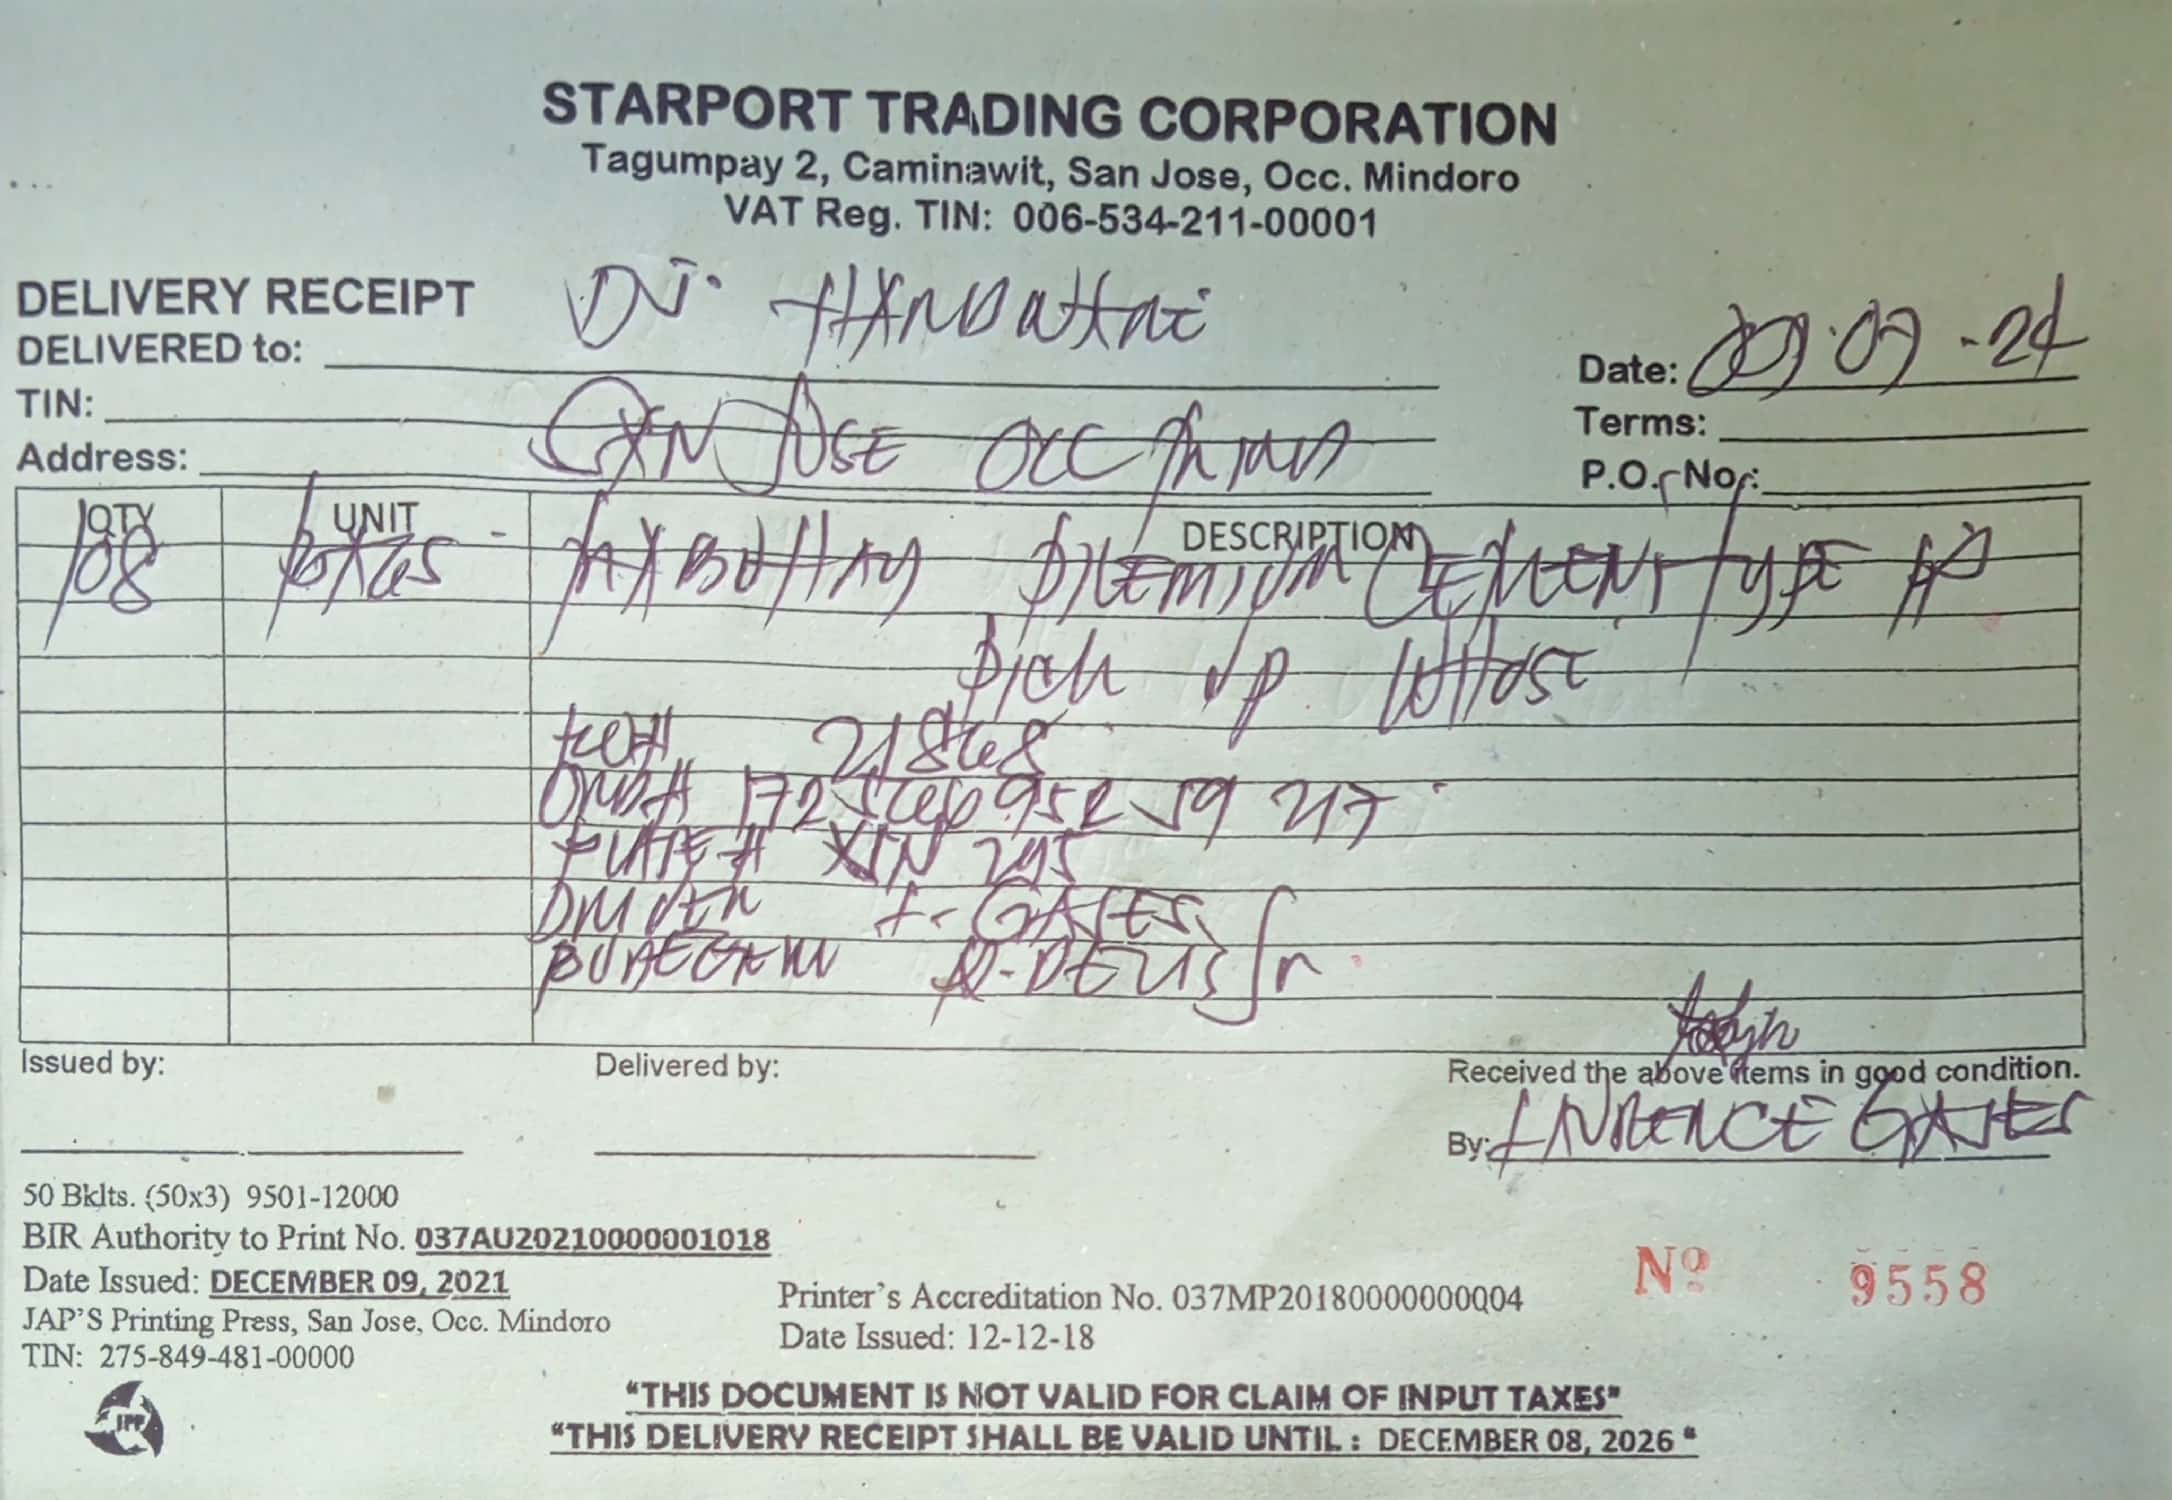 STARPORT TRADING CORPORATION
Tagumpay 2, Caminawit, San Jose, Occ. Mindoro
VAT Reg. TIN: 006-534-211-00001
DELIVERY RECEIPT
DELIVERED to:
TIN:
Address: SAN JOSE OCC
Date: 09-07-24
Terms:
P.O. No.:
QTY UNIT DESCRIPTION
108 PREMIUM CEMENT TYPE
Pick up WHOSE
21868
PLATE # XIN 295
DRIVER L. GASES
Issued by:
Delivered by:
Received the above items in good condition.
By: LAURENCE
50 Bklts. (50x3) 9501-12000
BIR Authority to Print No. 037AU20210000001018
Date Issued: DECEMBER 09, 2021
JAP'S Printing Press, San Jose, Occ. Mindoro
TIN: 275-849-481-00000
Printer's Accreditation No. 037MP20180000000004
Date Issued: 12-12-18
Nº 9558
JPP
"THIS DOCUMENT IS NOT VALID FOR CLAIM OF INPUT TAXES"
"THIS DELIVERY RECEIPT SHALL BE VALID UNTIL : DECEMBER 08, 2026 "